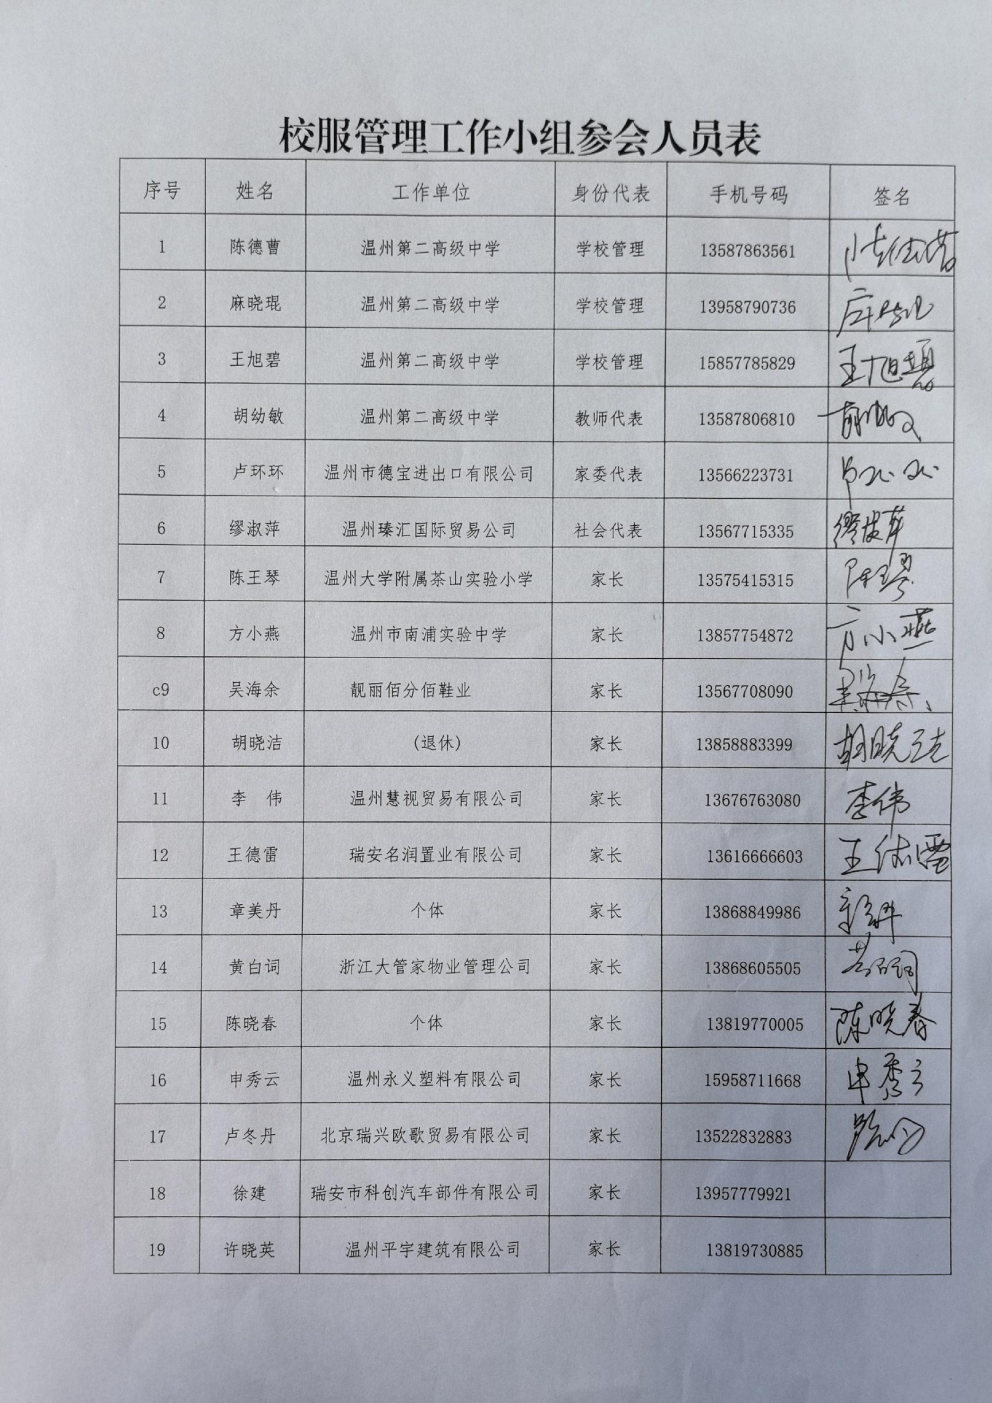 校服管理工作小组参会人员表
序号 姓名 工作单位 身份代表 手机号码 签名
1 陈德曹 温州第二高级中学 学校管理 13587863561 陈德曹
2 麻晓琨 温州第二高级中学 学校管理 13958790736
3 王旭碧 温州第二高级中学 学校管理 15857785829 王旭碧
4 胡幼敏 温州第二高级中学 教师代表 13587806810 胡幼敏
5 卢环环 温州市德宝进出口有限公司 家委代表 13566223731
6 缪淑萍 温州瑧汇国际贸易公司 社会代表 13567715335 缪淑萍
7 陈王琴 温州大学附属茶山实验小学 家长 13575415315 陈王琴
8 方小燕 温州市南浦实验中学 家长 13857754872 方小燕
c9 吴海余 靓丽佰分佰鞋业 家长 13567708090 吴海余
10 胡晓洁 (退休) 家长 13858883399 胡晓洁
11 李 伟 温州慧视贸易有限公司 家长 13676763080 李伟
12 王德雷 瑞安名润置业有限公司 家长 13616666603 王德雷
13 章美丹 个体 家长 13868849986
14 黄白词 浙江大管家物业管理公司 家长 13868605505 黄白词
15 陈晓春 个体 家长 13819770005 陈晓春
16 申秀云 温州永义塑料有限公司 家长 15958711668 申秀云
17 卢冬丹 北京瑞兴欧歌贸易有限公司 家长 13522832883
18 徐建 瑞安市科创汽车部件有限公司 家长 13957779921
19 许晓英 温州平宇建筑有限公司 家长 13819730885